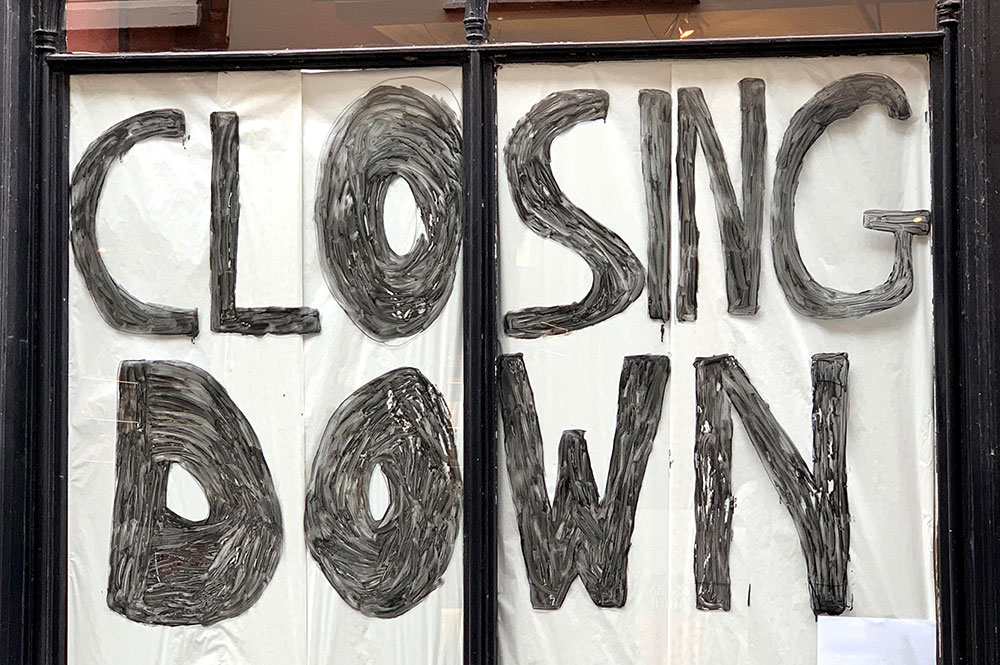 CLOSING
DOWN